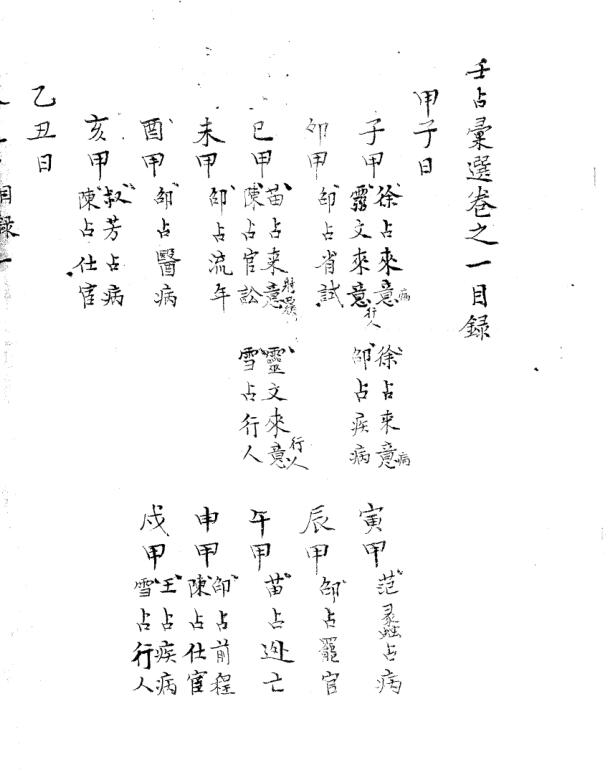 壬占彙選卷之一目録
甲子日
子甲 徐占來意病 徐占來意病
靈文來意行人 邵占疾病
寅甲 范蠡占病
卯甲 邵占省試
辰甲 邵占罷官
巳甲 苗占来意 靈文來意行人
陳占官訟 雪占行人
午甲 苗占逃亡
未甲 邵占流年
申甲 邵占前程
陳占仕宦
酉甲 邵占醫病
戌甲 王占疾病
雪占行人
亥甲 叔芳占病
陳占仕宦
乙丑日
目録一